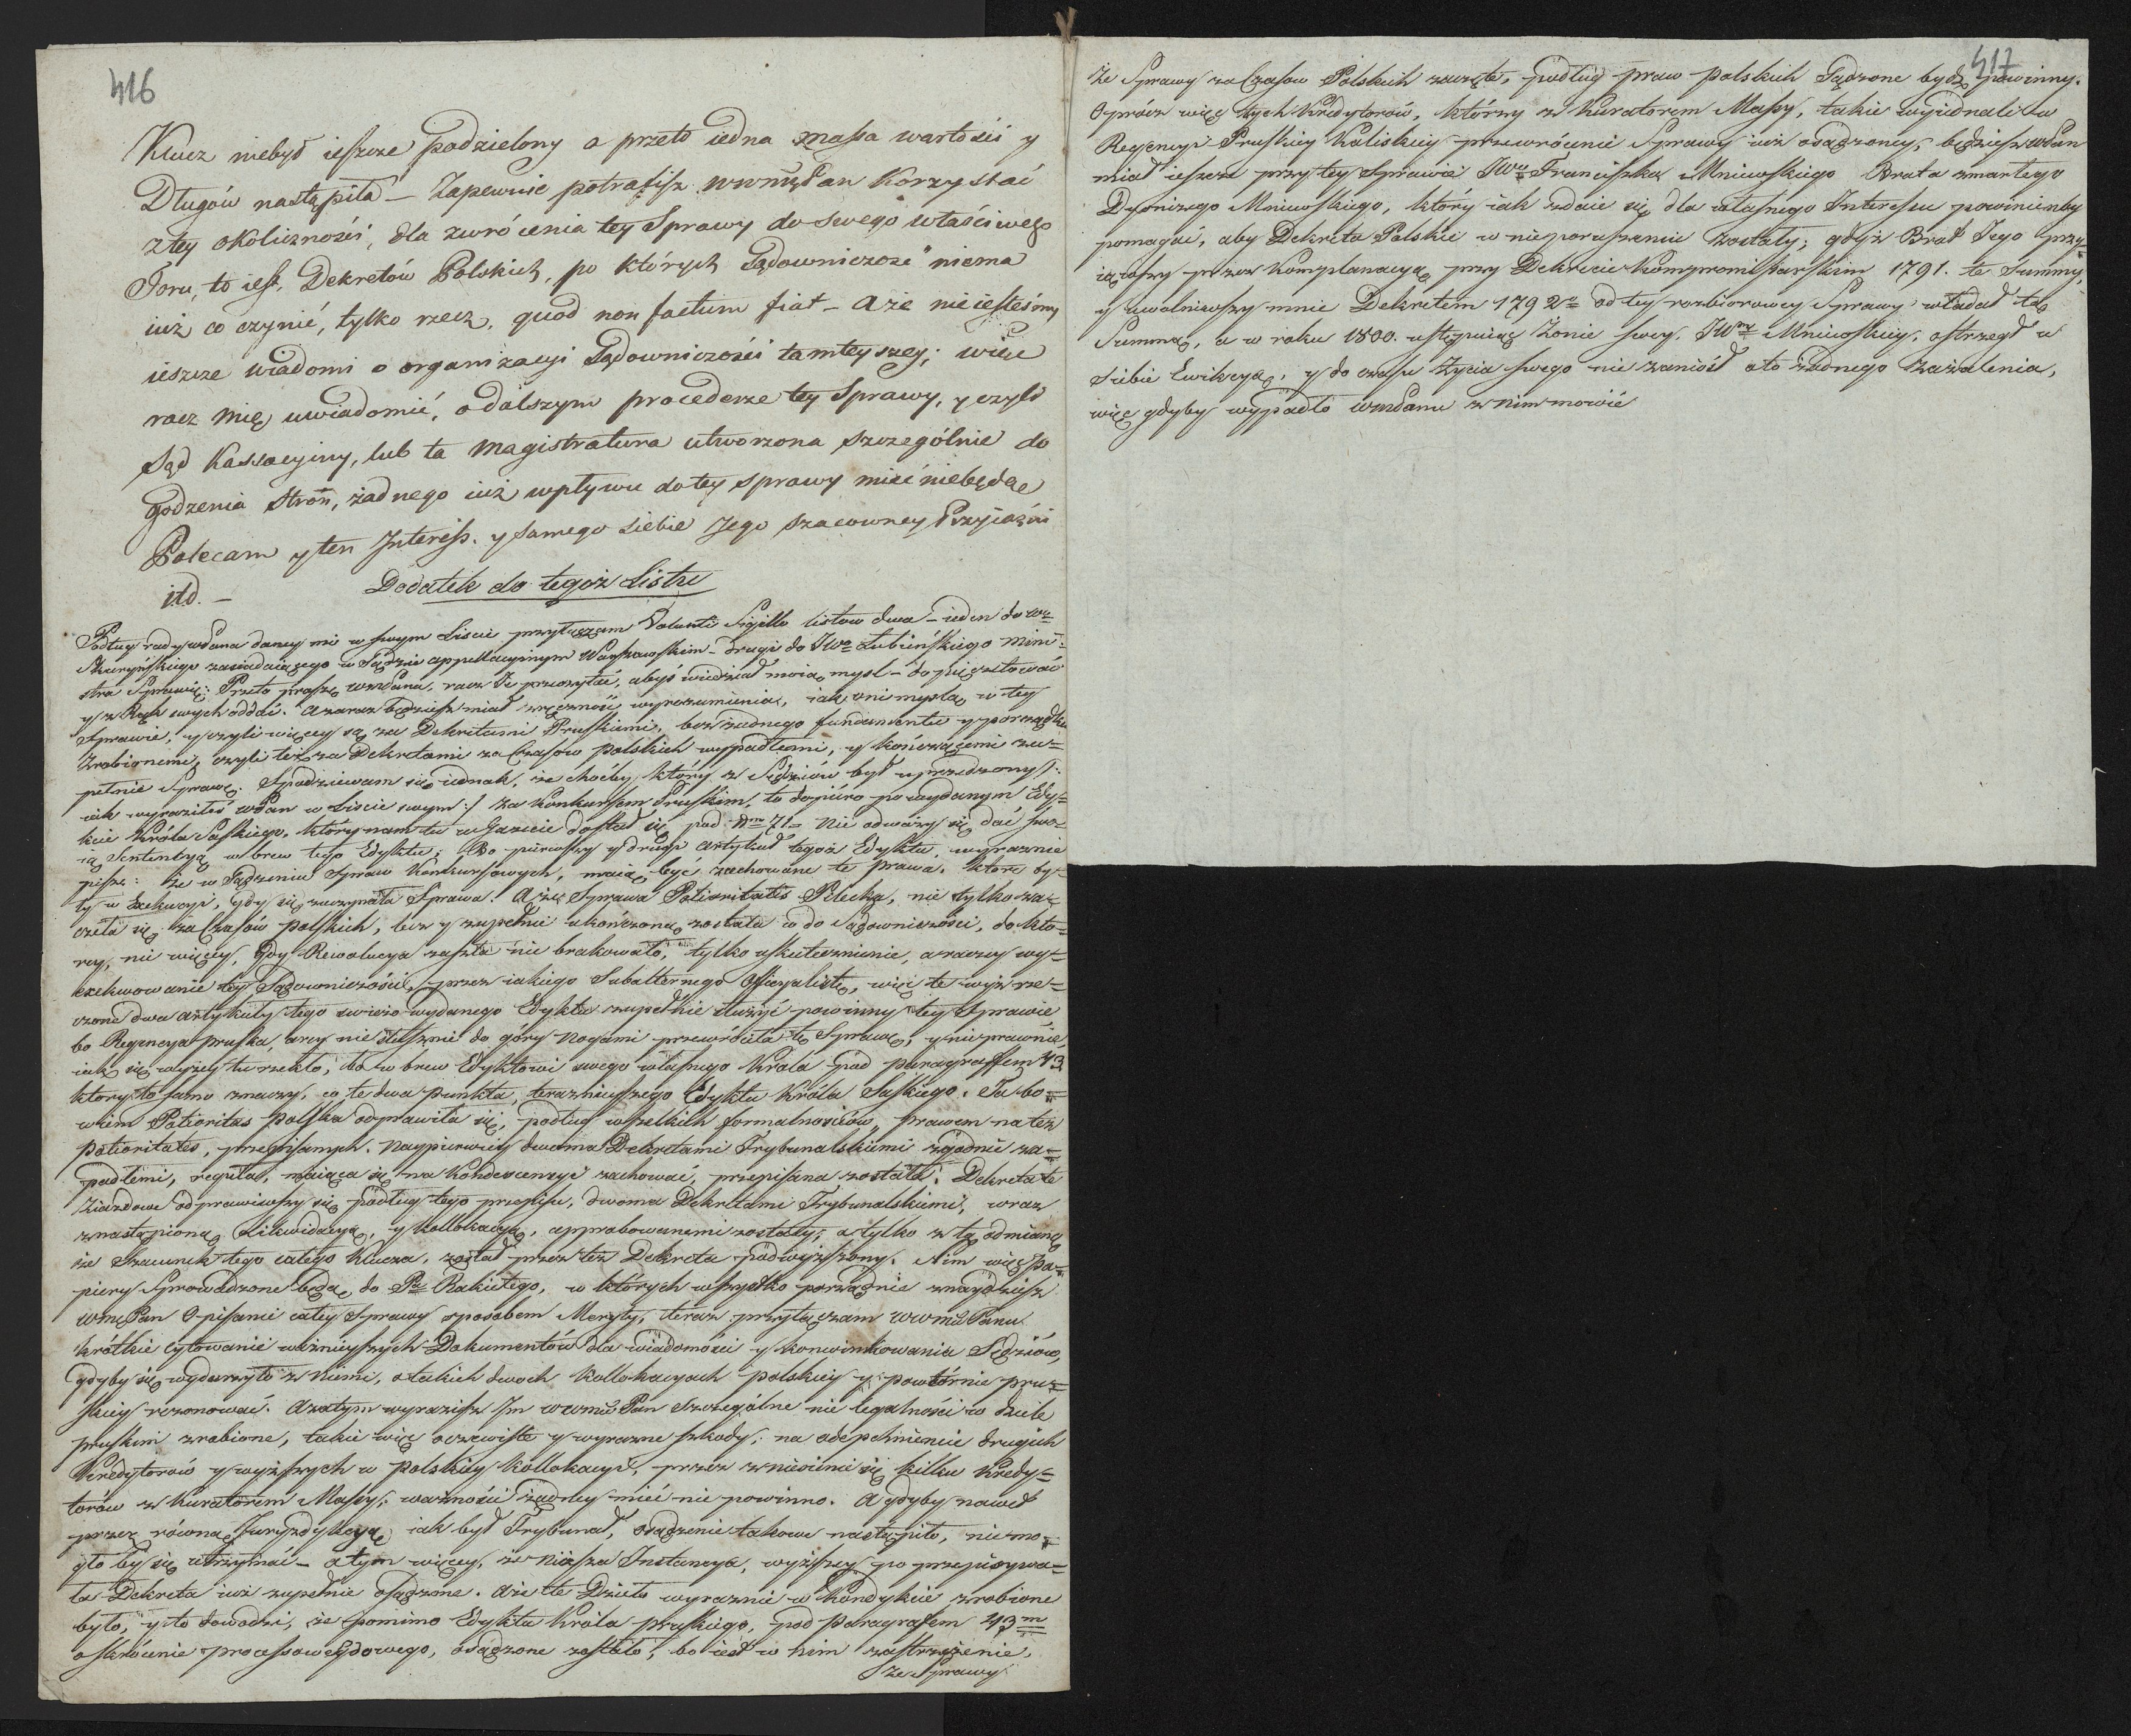 416
Klucz niebył ieszcze podzielony a przeto iedna massa wartości y
Długów nastąpiła – Zapewnie potrafisz WWMPan korzystać
z tey okoliczności, dla zwrócenia tey Sprawy do swego właściwego
Toru, to iest, Dekretów Polskich, po których Sądowniczość niema
iuż co czynić, tylko rzecz, quod non factum fiat – A że nie iesteśmy
ieszcze wiadomi o organizacyi Sądowniczości tamteyszey; więc
racz mię uwiadomić, o dalszym procederze tey Sprawy, y czyli
Sąd Kassacyiny, lub ta Magistratura utworzona szczególnie do
godzenia Stron, żadnego iuż wpływu do tey sprawy mieć niebędzie
Polecam y ten Interess. y samego siebie Jego szacowney Przyiaźni
itd. – Dodatek do tegoż Listu
Podług rady WPana daney mi w swym Liscie przyłączam Volanti Sigillo listow dwa – ieden do
Skurzyńskiego zasiadaiącego w Sądzie appellacyinym Warszawskim – drugi do JWo Łubieńskiego Mini=
stra Sprawie: Przeto proszę WMPana, racz Je przeczytać, abyś wiedział moią mysl – dopieczętować
y z Rąk swych oddać. A zaraz będziesz miał zręczność wyrozumienia, iak oni myslą w tey
Sprawie, y czyli więcey są za Dekretami Pruskiemi, bez żadnego fundamentu y porządku
Zrobionemi, czyli też za Dekretami za Czasów polskich wypadłemi, y kończącemi zu=
pełnie Sprawę. Spodziewam się iednak, że choćby który z Sędziów był uprzedzony /:
iak wyraziłeś WPan w Liscie swym :/ za Konkursem Pruskim, to dopiero po wydanym Edy=
kcie Króla Saskiego, który nam tu w Gazecie dostał się pod Nrm 71 = Nie odważy się dać swo=
ią Sentencyą w brew tego Edyktu; Bo pierwszy y drugi artykuł tegoż Edyktu wyraznie
pisze: że w Sądzeniu Spraw Konkursowych, maią być zachowane te prawa, ktore by=
ły w Exekucyi, gdy się zaczynała Sprawa. A że Sprawa Potioritatis Pelecka, nie tylko za=
częła się za Czasów polskich, lecz y zupełnie ukończona została co do Sądowniczości, do któ=
rey, nic więcey, gdy Rewolucya zaszła nie brakowało, tylko uskutecznienie, a raczey wy=
exekwowanie tey Sądowniczości, przez iakiego Subalternego Officyalistę, więc te wyż rze=
czone dwa artykuły tego świeżo wydanego Edyktu zupełnie służyć powinny tey Sprawie
bo Regencya pruska, arcy niesłusznie do góry nogami przewróciła tę Sprawę, y nie prawnie,
iak się wyżey tu rzekło, bo w brew Edyktowi swego własnego Krola pod paragraffem 43
ktory to samo znaczy, co te dwa punkta, teraznieyszego Edyktu Króla Saskiego. Ta bo=
wiem Potioritas polska odprawiła się, podług wszelkich formalnościów, prawem na też
potioritates, przepisanych. Naypierwiey dwoma Dekretami Trybunalskiemi zgodnie za=
padłemi, reguła, maiąca się na Kondescensyi zachować, przepisana została. Dekreta te
Ziazdowe odprawiwszy się podług tego przepisu, dwoma Dekretami Trybunalskiemi, wraz
z nastąpioną Likwidacyą, y Kollokacyą, approbowanemi zostały; a tylko z tą odmianą
że Szacunek tego całego Klucza, został przez też Dekreta podwyższony. Nim więc pa=
piery Sprowadzone będą do Pa Rakietego, w których wszystko porządnie znaydziesz
WMPan Opisanie całey Sprawy sposobem Meryty, teraz przyłączam WWMPanu
krótkie cytowanie ważnieyszych Dokumentów dla wiadomości y konwinkowania Sędziów,
gdyby się wydarzyło z niemi, o takich dwoch Kollokacyach polskiey y powtórnie prus=
skiey rezonować. A zatym wyrazisz Im WWMPan Szczegolne nie legalności co dziele
pruskim zrobione, takie więc oczewiste y wyrazne szkody, na odepchnienie drugich
Kredytorów y wyższych w polskiey Kollokacyi, przez zniesienie się kilku Kredy=
torów z Kuratorem Massy, ważności żadney mieć nie powinno. A gdyby nawet
przez równą Juryzdykcyą iak był Trybunał, osądzenie takowe nastąpiło, nie mo=
gło by się utrzymać – a tym więcey, że niższa Instancya, wyższey poprzepisywa=
ła Dekreta iuż zupełnie osądzone. A że te Dzieło wyraznie w Kondykcie zrobione
było, y to dowodzi, że pomimo Edyktu Króla pruskiego, pod Paragrafem 43m
o skrócenie processowego, osądzone zostało, bo iest w nim zastrzeżenie,
że Sprawy
417
że Sprawy za Czasow Polskich zaczęte, podług praw polskich Sądzone bydź powinny.
Oprócz więc tych Kredytorów, którzy z Kuratorem Massy, takie wyiednali w
Regencyi Pruskiey Kaliskiey przewrócenie Sprawy iuż osądzoney, będziesz WPan
miał ieszcze przy tey Sprawie JWo Franciszka Mniewskiego Brata zmarłego
Dyonizego Mniewskiego, który iak zdaie się dla własnego Interessu powinienby
pomagać, aby Dekreta Polskie w nieporuszeniu zostały; gdyż Brat Jego przy=
iąwszy przez Komplanacyą przy Dekrecie Kompromissarskim 1791. te Summy,
y uwolniwszy mnie Dekretem 1792 od tey rozbiorowey Sprawy władał tą
Summą, a w roku 1800. ustępuiąc Żonie swey, JWey Mniewskiey, ostrzegł w
siebie Ewikcyą, y do czasu życia swego nie zaniósł o to żadnego Zażalenia,
więc gdyby wypadło WMPanu z nim mowić